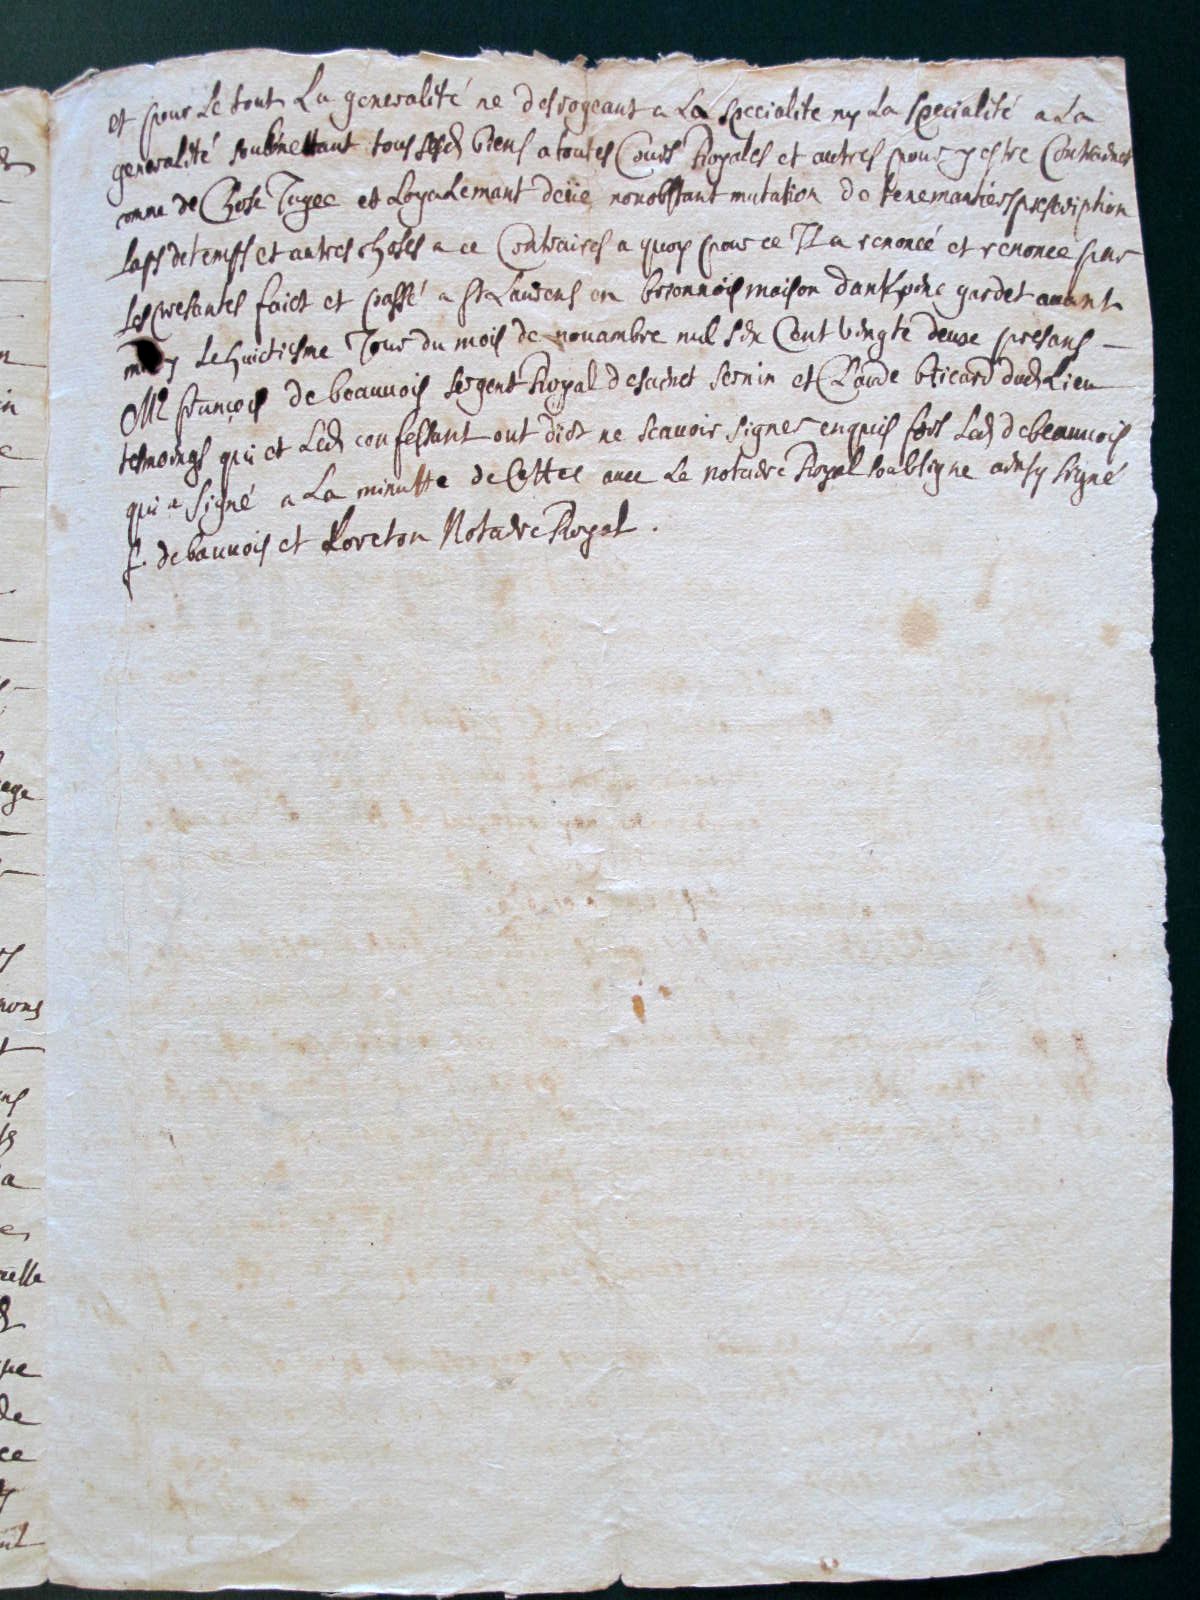 et pour Le tout La generalité ne desrogeant a La specialite ny La specialité a La
generalité soubmettant tous sesd biens a toutes Cours Royales et autres pour y estre Contrainct
comme de Chose Jugee et Loyalemant deüe nonobstant mutation de tenemantiers prescription
Laps de temps et autres choses a ce Contraires a quoy pour ce Il a renoncé et renonce par
Les presantes faict et passé a St Laurens en brionnois maison danthoine gardet auant
midy Le huictiesme Jour du mois de nouambre mil six Cent Vingte deuse presans
Me françois de beauuois sergent Royal de sainct sernin et Claude bricard dud Lieu
tesmoings qui et Led confessant ont dict ne scauoir signer enquis fors Led de beauuois
qui a signé a La minutte de Cettes auec Le notaire Royal soubsigne ainsy signé
f. de bauuois et Loreton Notaire Royal .
age
nons
a
que
de
ce